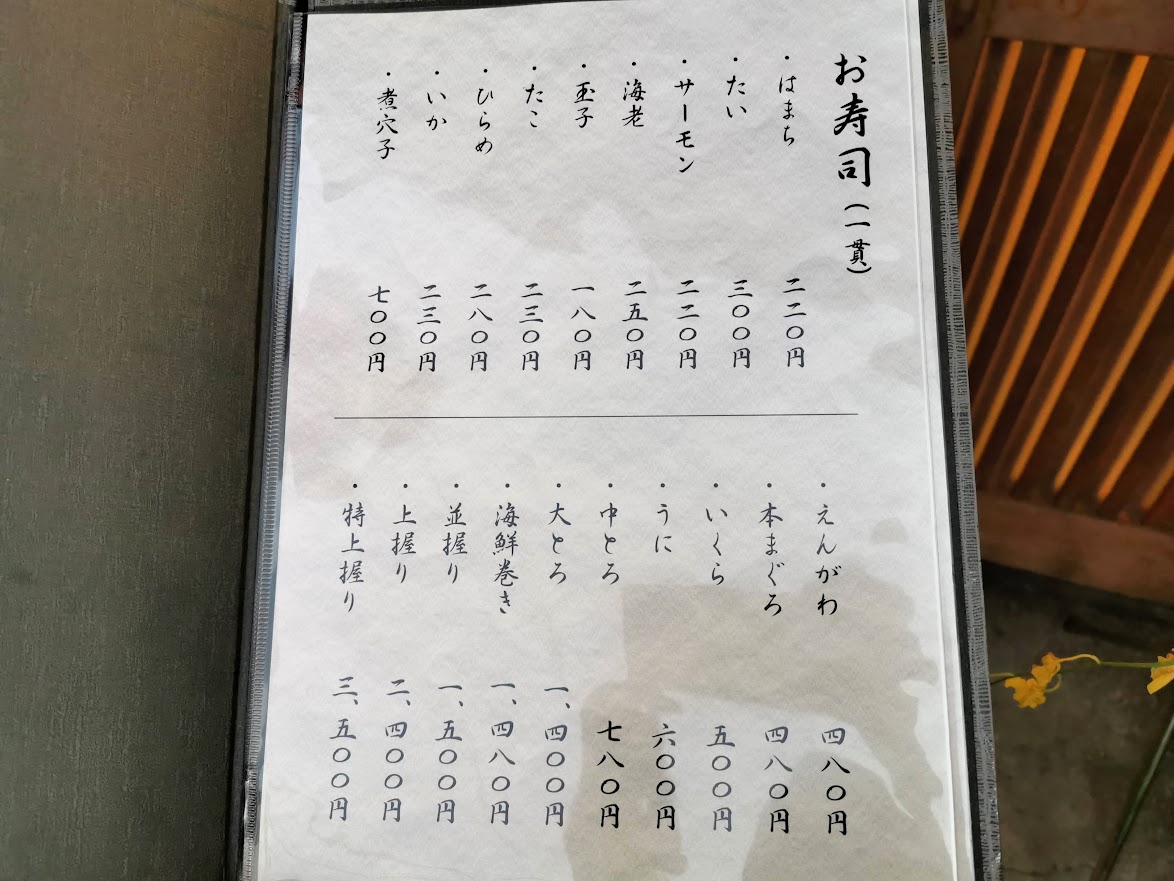 お寿司(一貫)
・はまち 二二〇円
・たい 三〇〇円
・サーモン 二二〇円
・海老 二五〇円
・玉子 一八〇円
・たこ 二三〇円
・ひらめ 二八〇円
・いか 二三〇円
・煮穴子 七〇〇円
・えんがわ 四八〇円
・本まぐろ 四八〇円
・いくら 五〇〇円
・うに 六〇〇円
・中とろ 七八〇円
・大とろ 一、四〇〇円
・海鮮巻き 一、四八〇円
・並握り 一、五〇〇円
・上握り 二、四〇〇円
・特上握り 三、五〇〇円